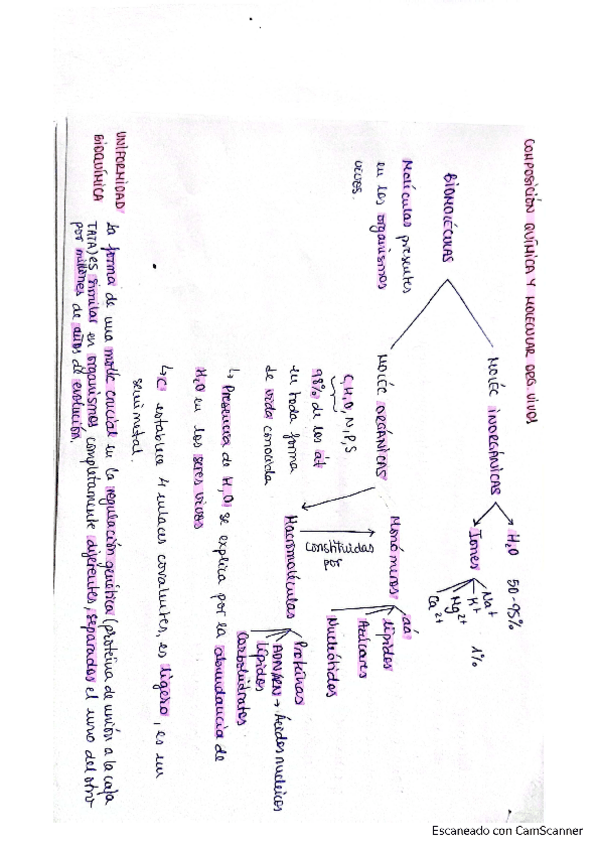 COMPOSICIÓN QUÍMICA Y MOLECULAR ORG. VIVOS
BIOMOLÉCULAS
Moléculas presentes
en los organismos
vivos.
MOLÉC INORGÁNICAS
H₂O 50-95%
Iones
Na⁺
K⁺
Mg²⁺
Ca²⁺
1%
MOLÉC ORGÁNICAS
C,H,O,N,P,S
98% de los át
en toda forma
de vida conocida
Monómeros
aá
Lípidos
Azúcares
Nucleótidos
constituidas
por
Macromoléculas
Proteínas
ADN/ARN → Ácidos nucleicos
Lípidos
Carbohidratos
↳ Presencia de H,O se explica por la abundancia de
H₂O en los seres vivos
↳ C establece 4 enlaces covalentes, es ligero, es un
semimetal.
UNIFORMIDAD
BIOQUÍMICA
La forma de una moléc crucial en la regulación genética (proteína de unión a la caja
TATA) es similar en organismos completamente diferentes, separados el uno del otro
por millones de años de evolución.
Escaneado con CamScanner